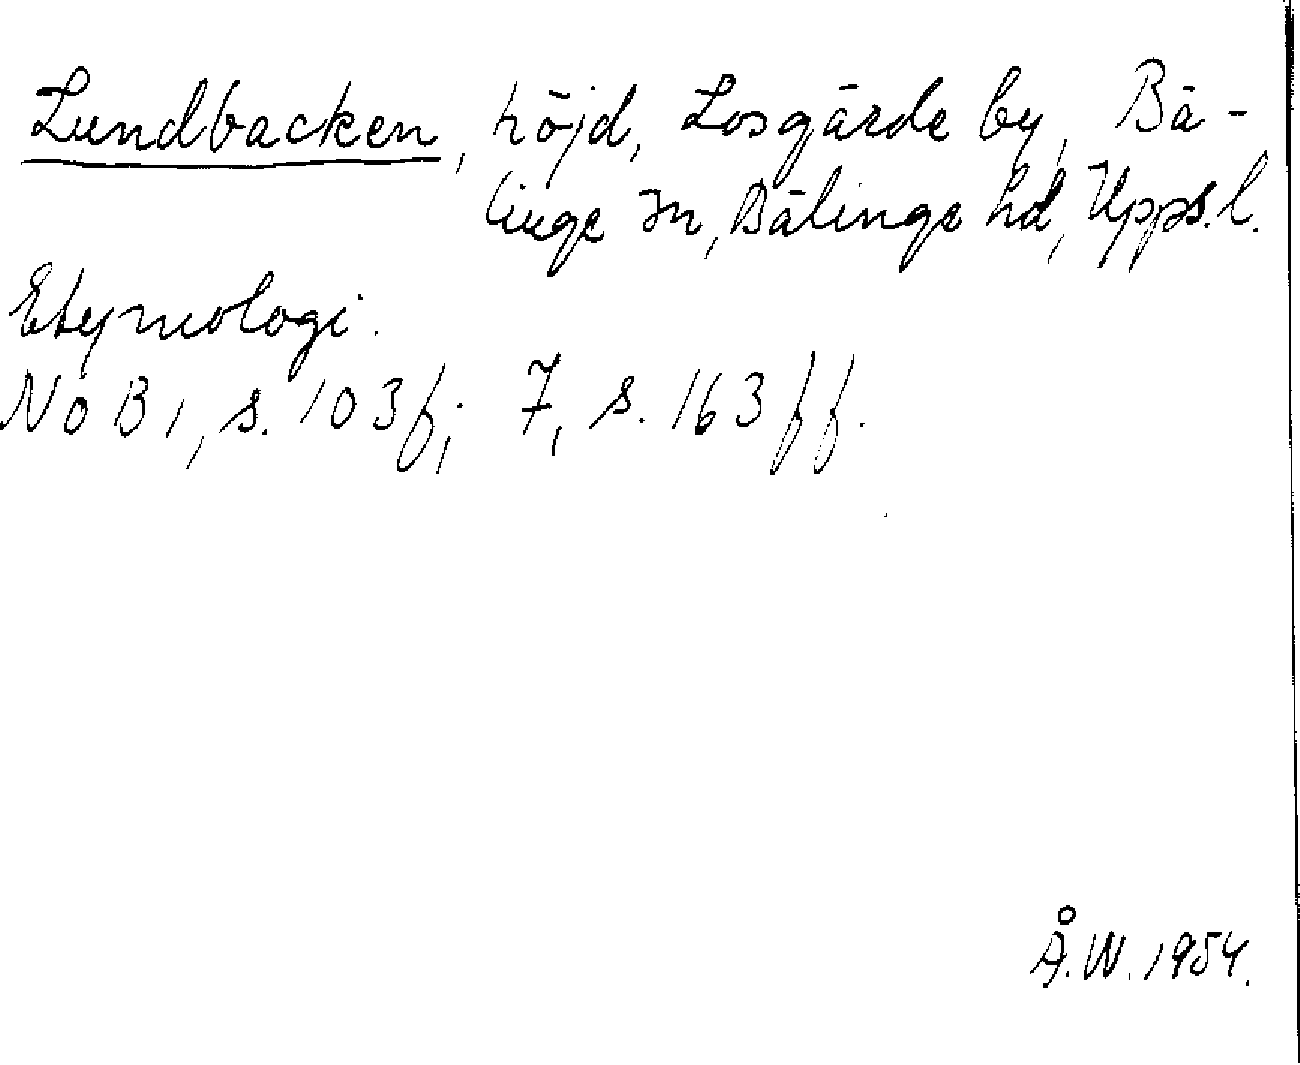 Lundbacken, höjd, Losgärde by, Bä-
linge sn, Bälinge hd, Uppsl. l.
Etymologi.
NoB 1, s. 103 f; 7, s. 163 ff.
Å. W. 1954.